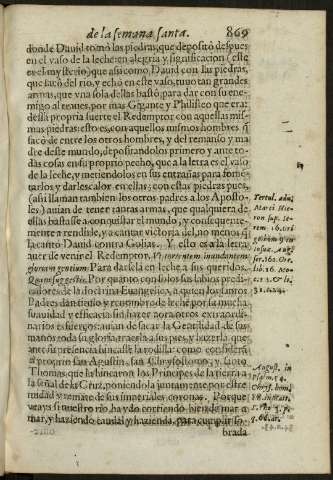 de la semana santa. 869
donde Dauid tomò las piedras, que depositò despues
en el vaso de la leche: en alegria y significacion (este
es el mysterio) que assi como Dauid con las piedras,
que sacò del rio, y echò en este vaso, tuuo tan grandes
armas, que vna sola dellas bastò, para dar con su ene-
migo al traues, por mas Gigante y Philisteo que era:
dessa propria suerte el Redemptor con aquellas mis-
mas piedras: esto es, con aquellos mismos hombres q̃
sacò de entre los otros hombres, y del remanso y ma
dre deste mundo, depositandolos primero y ante to-
das cosas en su proprio pecho, que a la letra es el vaso
de la leche, y metiendolos en sus entrañas para fomé
tarlos y darles calor en ellas: con estas piedras pues,
(assi llaman tambien los otros padres a los Aposto-
les) auian de tener tantas armas, que qualquiera de
ellas bastasse a conquistar el mundo, y conseguiente-
mente a rendirle, y a cantar victoria del, no menos q̃
la cantò Dauid contra Golias. Y esto es a la letra
auer de venir el Redemptor, Vt torrentem inundantem
gloriam gentium. Para darsela en leche a sus queridos,
Quem suggestis. Por quanto con solos sus labios predi-
cadores de la doctrina Euangelica, a quien los santos
Padres dan titulo y renombre de leche por la mucha
suauidad y efficacia, sin hazer aora otros extraordi-
narios esfuerços: auian de sacar la Gentilidad de sus
manos toda su gloria, traerla a sus pies, y hazerla que
ante su presencia hincasse la rodilla: como considera
el proprio san Augustin, san Chrysostomo, y santo
Thomas, que la hincaron los Principes de la tierra a
la señal de la Cruz, poniendola juntamente por estre
midad y remate de sus imperiales coronas. Porque
veays si nuestro rio, ha ydo corriendo, hiriendo mar a
mar, y haziendo causa, y haziendo, para cumplir so-
brada
Tertul. adu.
Marci
Hie-
ron sup. Ie-
rem
Aug.
ser. 161. Gre.
lib. 16.
August. in
Psalm. 54.
Chrys. hom.